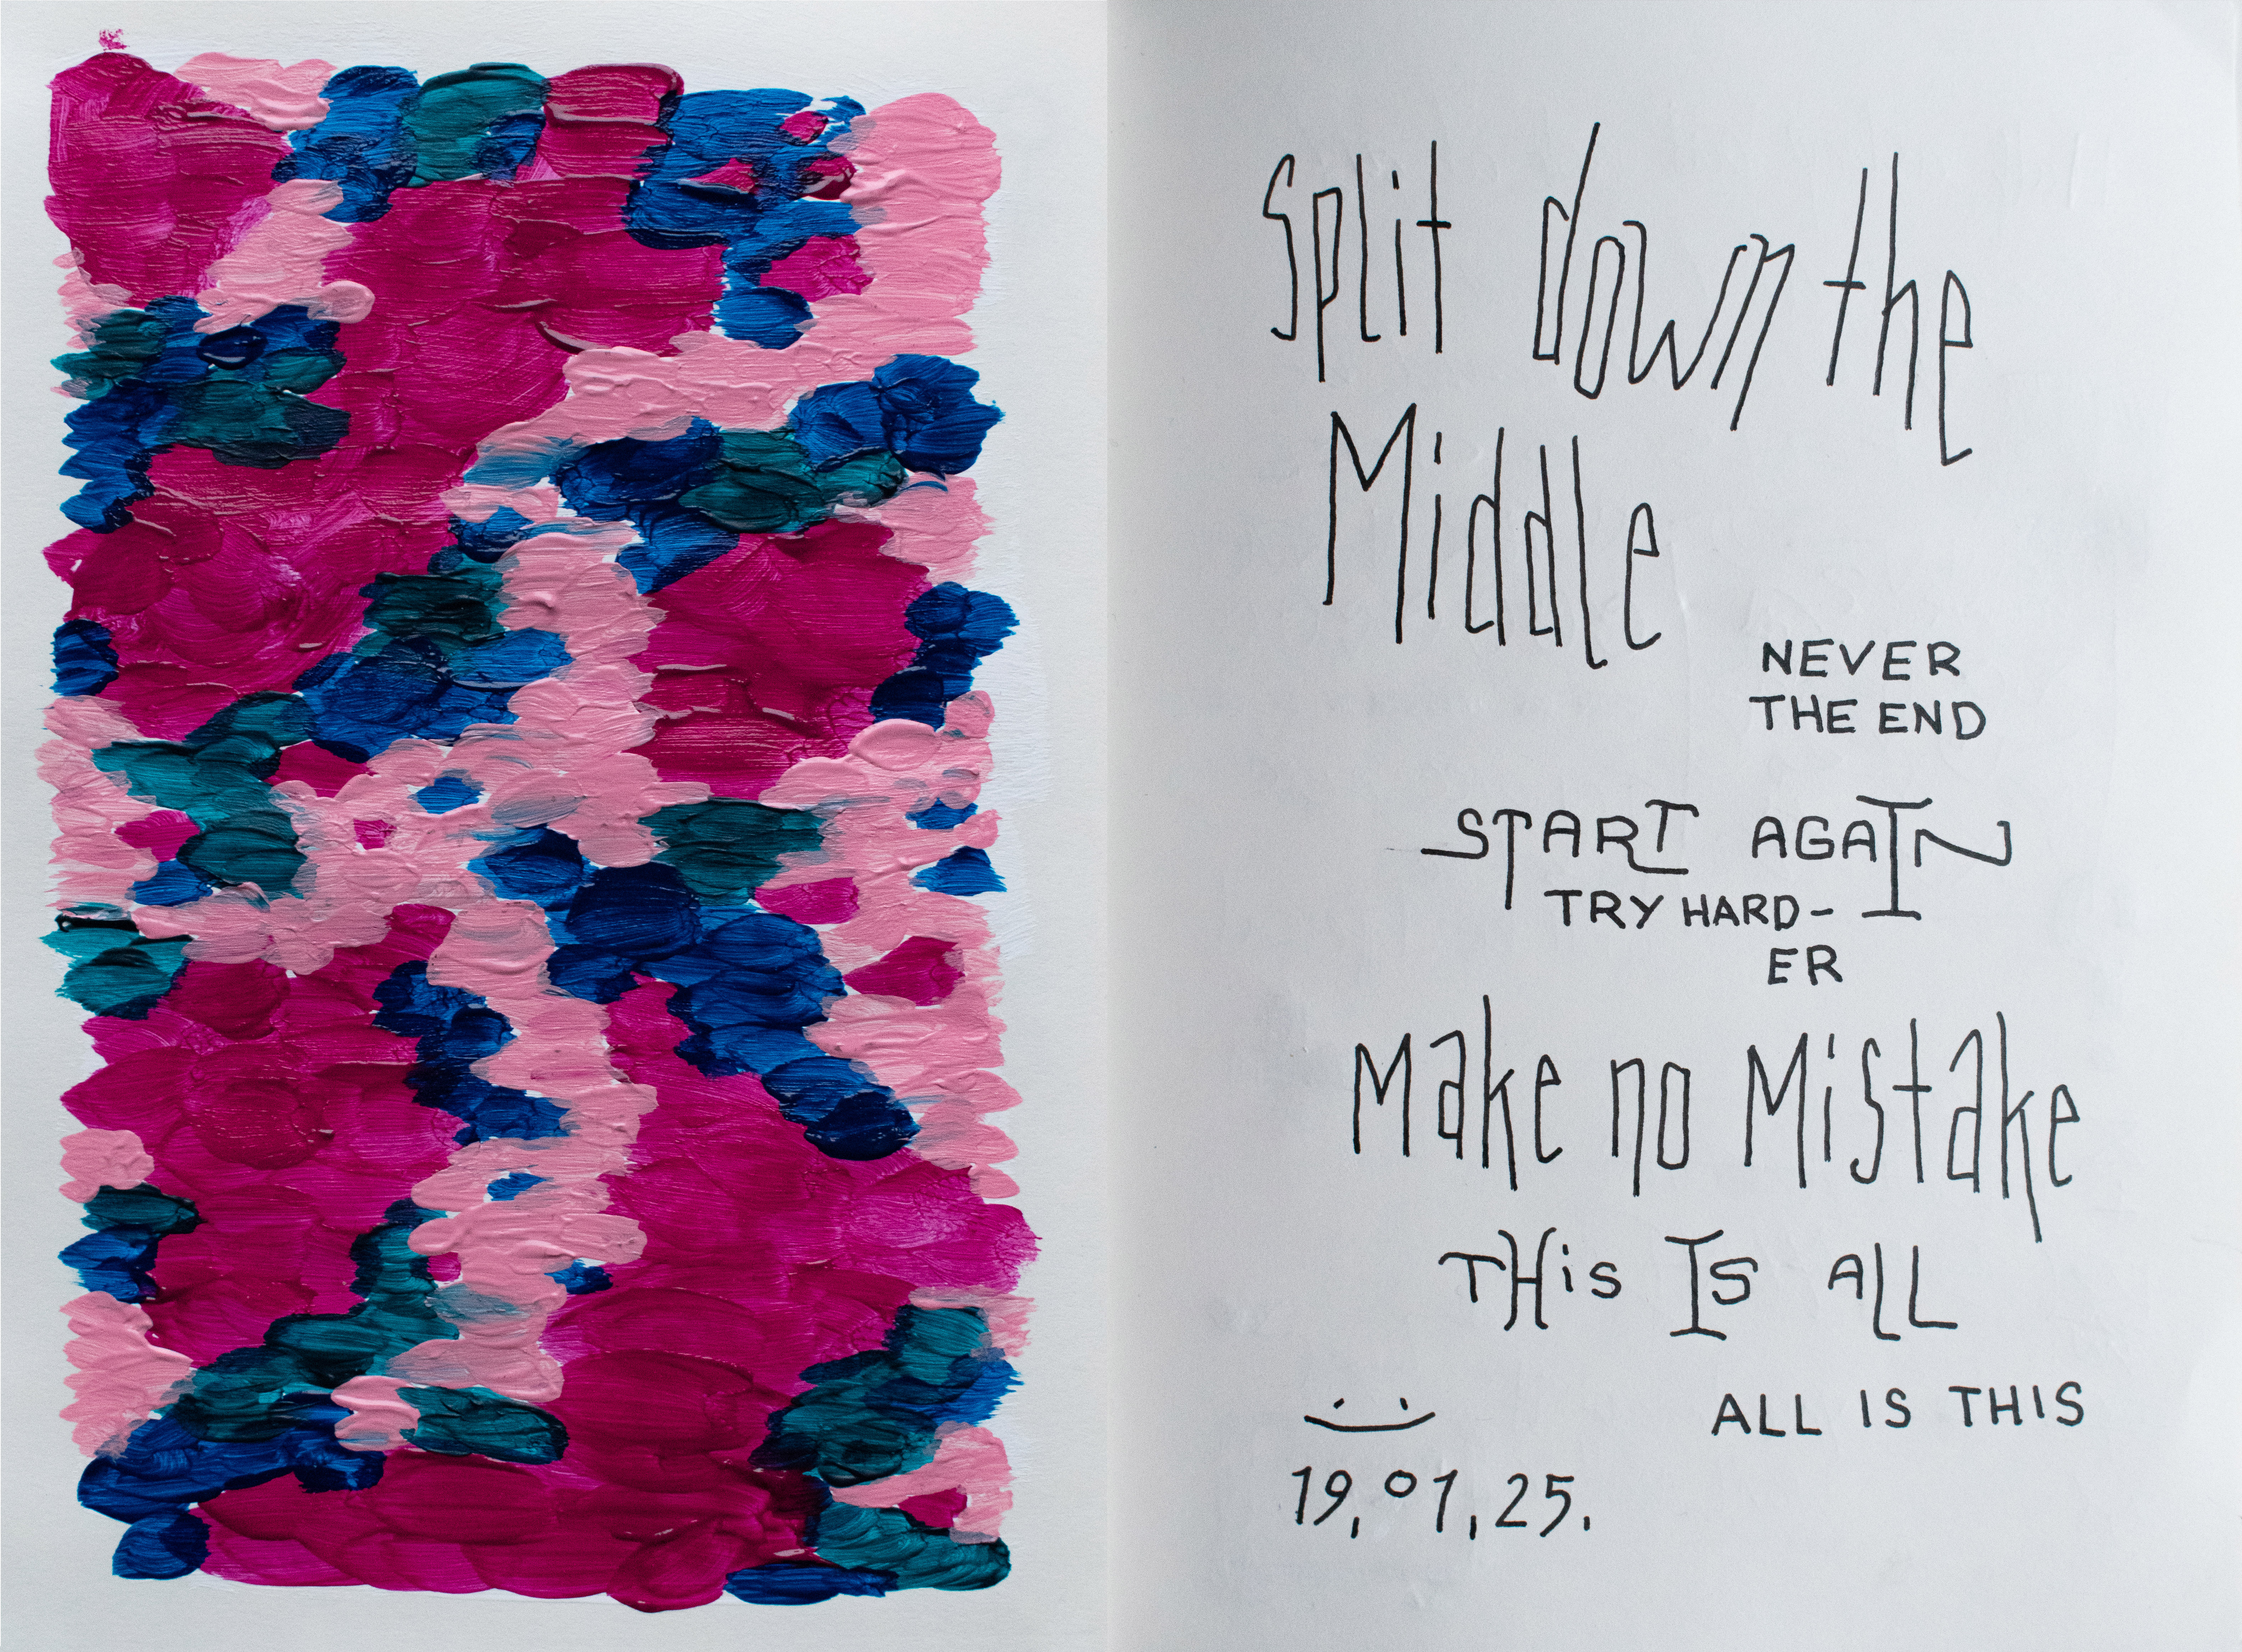 Split down the
Middle
NEVER
THE END
START AGAIN
TRY HARD-
ER
Make no Mistake
THiS IS ALL
ALL IS THIS
19,01,25.